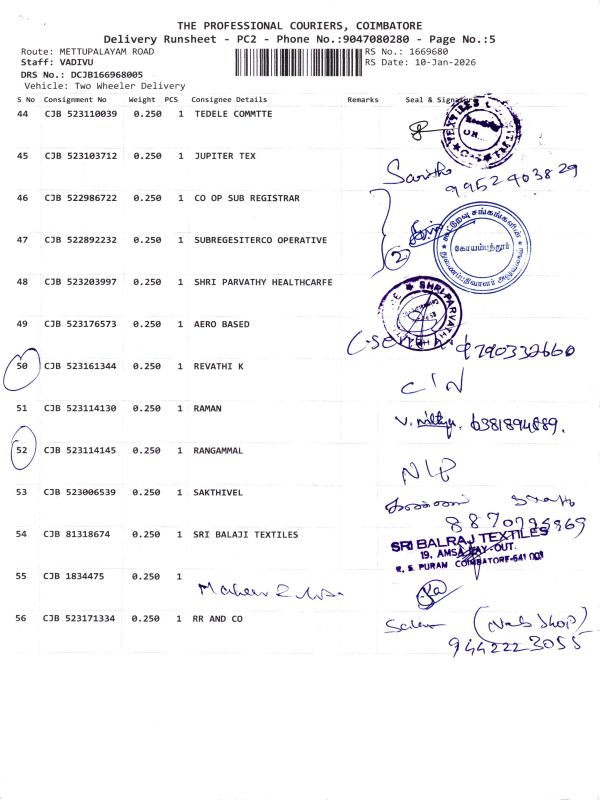 THE PROFESSIONAL COURIERS, COIMBATORE
Delivery Runsheet - PC2 - Phone No.:9047080280 - Page No.:5
Route: METTUPALAYAM ROAD RS No.: 1669680
Staff: VADIVU RS Date: 10-Jan-2026
DRS No.: DCJB166968005
Vehicle: Two Wheeler Delivery
S No Consignment No Weight PCS Consignee Details Remarks Seal & Signature
44 CJB 523110039 0.250 1 TEDELE COMMTTE
45 CJB 523103712 0.250 1 JUPITER TEX
9952403829
46 CJB 522986722 0.250 1 CO OP SUB REGISTRAR
47 CJB 522892232 0.250 1 SUBREGESITERCO OPERATIVE
2
கோயம்புத்தூர்
48 CJB 523203997 0.250 1 SHRI PARVATHY HEALTHCARFE
SHRI PARVATH
49 CJB 523176573 0.250 1 AERO BASED
9790332660
50 CJB 523161344 0.250 1 REVATHI K
C/N
51 CJB 523114130 0.250 1 RAMAN
V. 6381894889.
52 CJB 523114145 0.250 1 RANGAMMAL
N/P
53 CJB 523006539 0.250 1 SAKTHIVEL
54 CJB 81318674 0.250 1 SRI BALAJI TEXTILES
SRI BALRAJ TEXTILES
19, AMSA LAY-OUT.
R. S. PURAM COIMBATORE-641 001
55 CJB 1834475 0.250 1
56 CJB 523171334 0.250 1 RR AND CO
9442223055